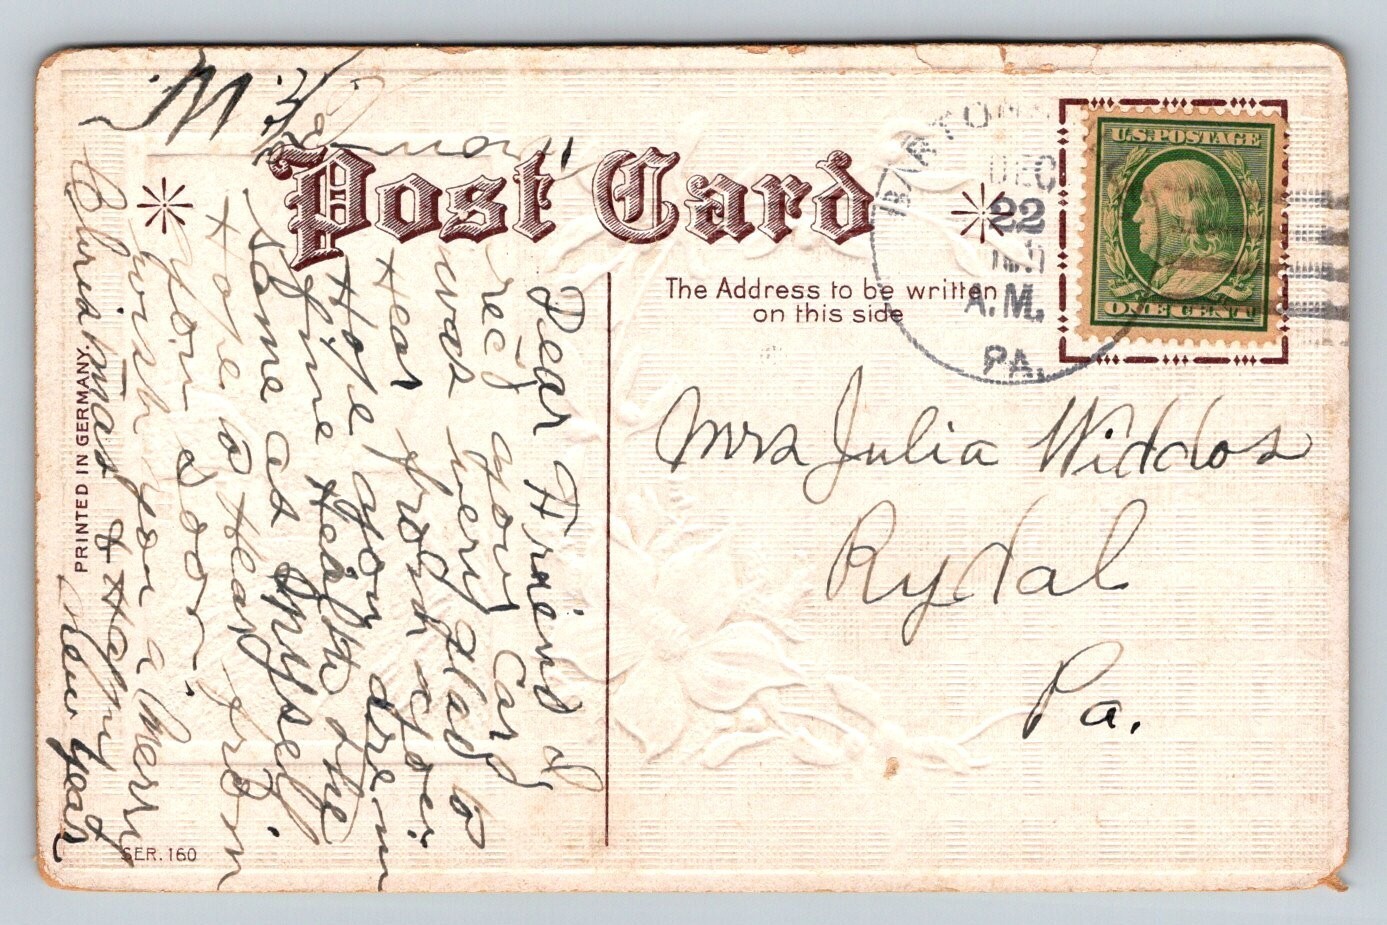 Post Card
The Address to be written
on this side
BARTO
DEC
22
A.M.
PA.
U.S. POSTAGE
ONE CENT
Mrs Julia Widdos
Rydal
Pa.
Dear Friend I
rec'd your Card
was very glad to
Hear from you.
Hope you are in
fine Health the
same as myself.
Hope to Hear from
you soon.
wish you a Merry
Christmas & Happy
New Year
From
PRINTED IN GERMANY.
SER. 160